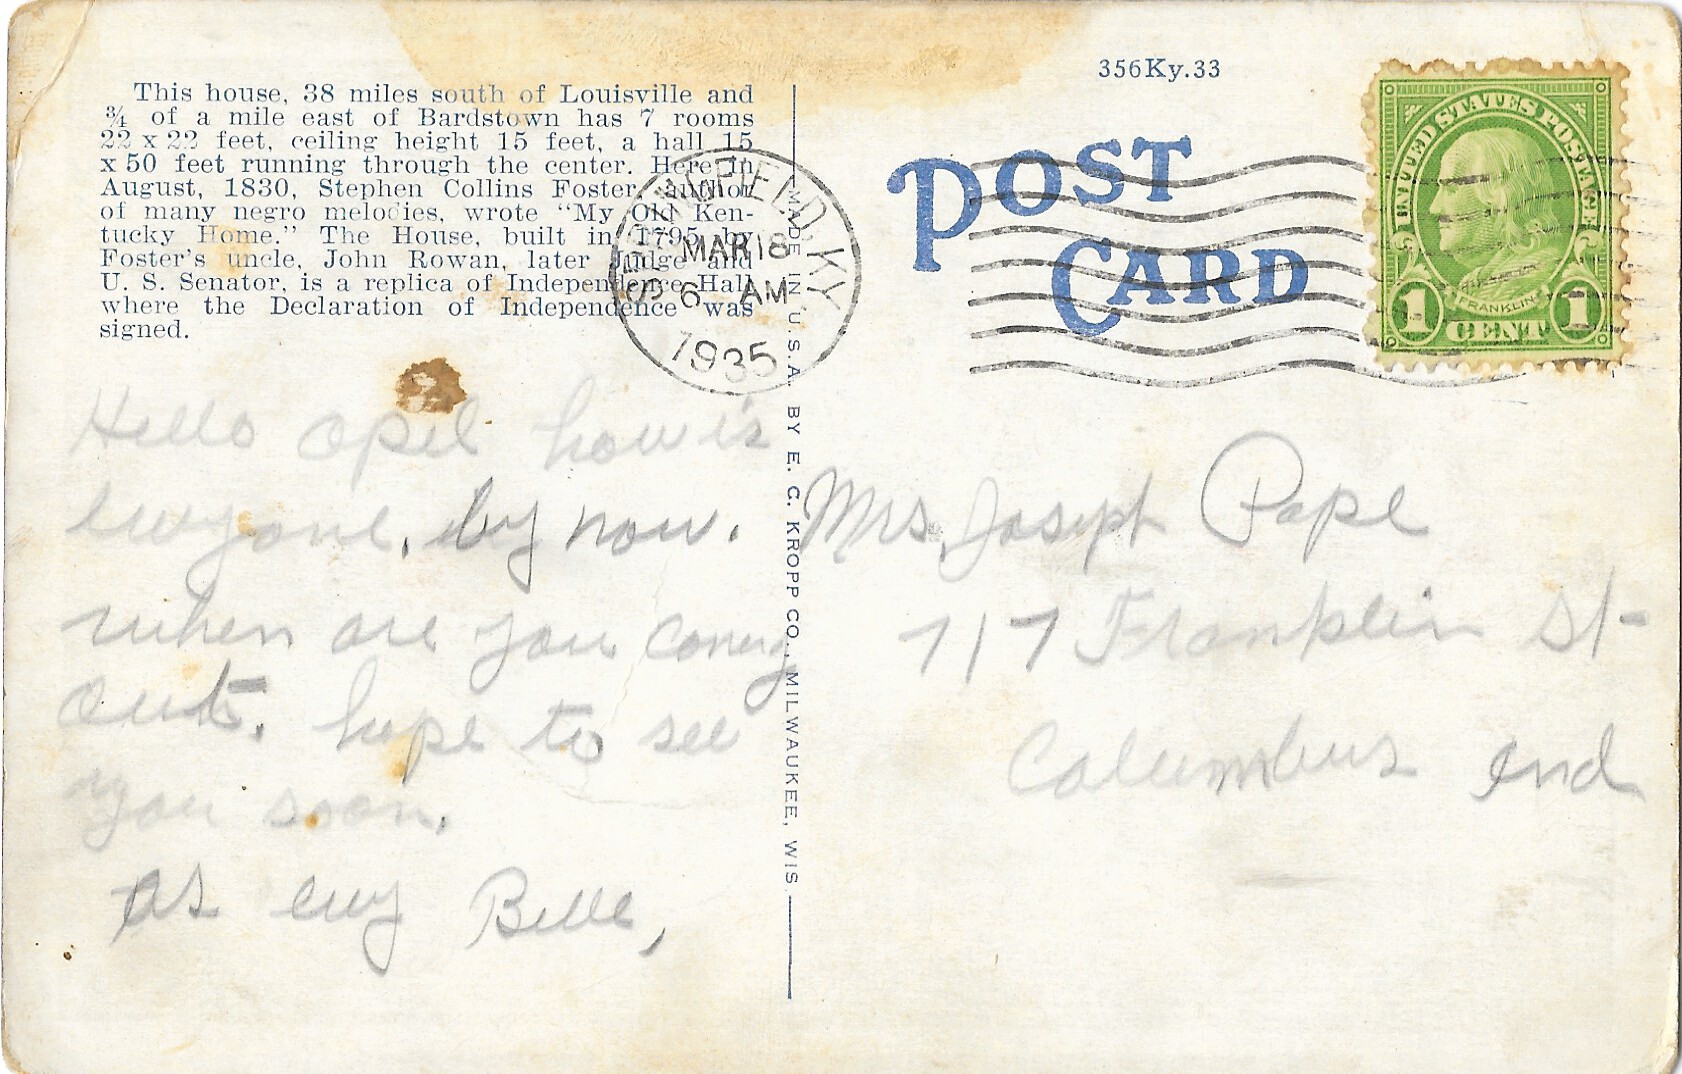 This house, 38 miles south of Louisville and
¾ of a mile east of Bardstown has 7 rooms
22 x 22 feet, ceiling height 15 feet, a hall 15
x 50 feet running through the center. Here in
August, 1830, Stephen Collins Foster, author
of many negro melodies, wrote "My Old Ken-
tucky Home." The House, built in 1795 by
Foster's uncle, John Rowan, later Judge and
U. S. Senator, is a replica of Independence Hall
where the Declaration of Independence was
signed.
356Ky.33
POST
CARD
UNITED STATES POSTAGE
FRANKLIN
1 CENT 1
KY.
MAR 18
6 AM
1935
MADE IN U.S.A. BY E. C. KROPP CO., MILWAUKEE, WIS.
Hello Opel how is
evryone. by now.
when are you coming
out. hope to see
you soon.
as evry Belle,
Mrs. Joseph Pope
717 Franklin St
Columbus Ind